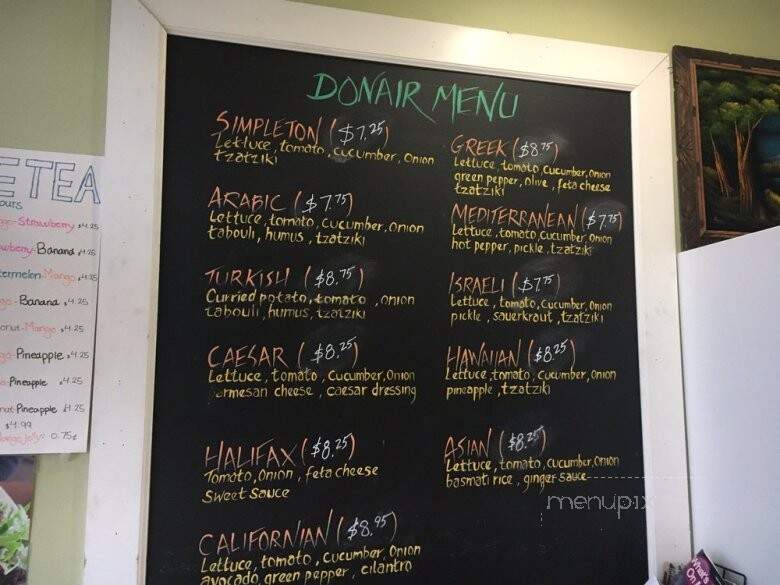 DONAIR MENU
SIMPLETON ($7.25)
Lettuce, tomato, cucumber, onion
tzatziki
ARABIC ($7.75)
Lettuce, tomato, cucumber, onion
tabouli, humus, tzatziki
TURKISH ($8.75)
Curried potato, tomato, onion
tabouli, humus, tzatziki
CAESAR ($8.25)
Lettuce, tomato, cucumber, onion
parmesan cheese, caesar dressing
HALIFAX ($8.25)
Tomato, onion, feta cheese
sweet sauce
CALIFORNIAN ($8.95)
Lettuce, tomato, cucumber, onion
avocado, green pepper, cilantro
GREEK ($8.75)
Lettuce, tomato, cucumber, onion
green pepper, olive, feta cheese
tzatziki
MEDITERRANEAN ($7.75)
Lettuce, tomato, cucumber, onion
hot pepper, pickle, tzatziki
ISRAELI ($7.75)
Lettuce, tomato, cucumber, onion
pickle, sauerkraut, tzatziki
HAWAIIAN ($8.25)
Lettuce, tomato, cucumber, onion
pineapple, tzatziki
ASIAN ($8.25)
Lettuce, tomato, cucumber, onion
basmati rice, ginger sauce
E TEA
ours
Strawberry $4.25
Banana $4.25
Mango $4.25
Banana $4.25
Mango $4.25
Pineapple $4.25
Pineapple $4.25
Pineapple $4.25
$4.99
jelly 0.75¢
menupix